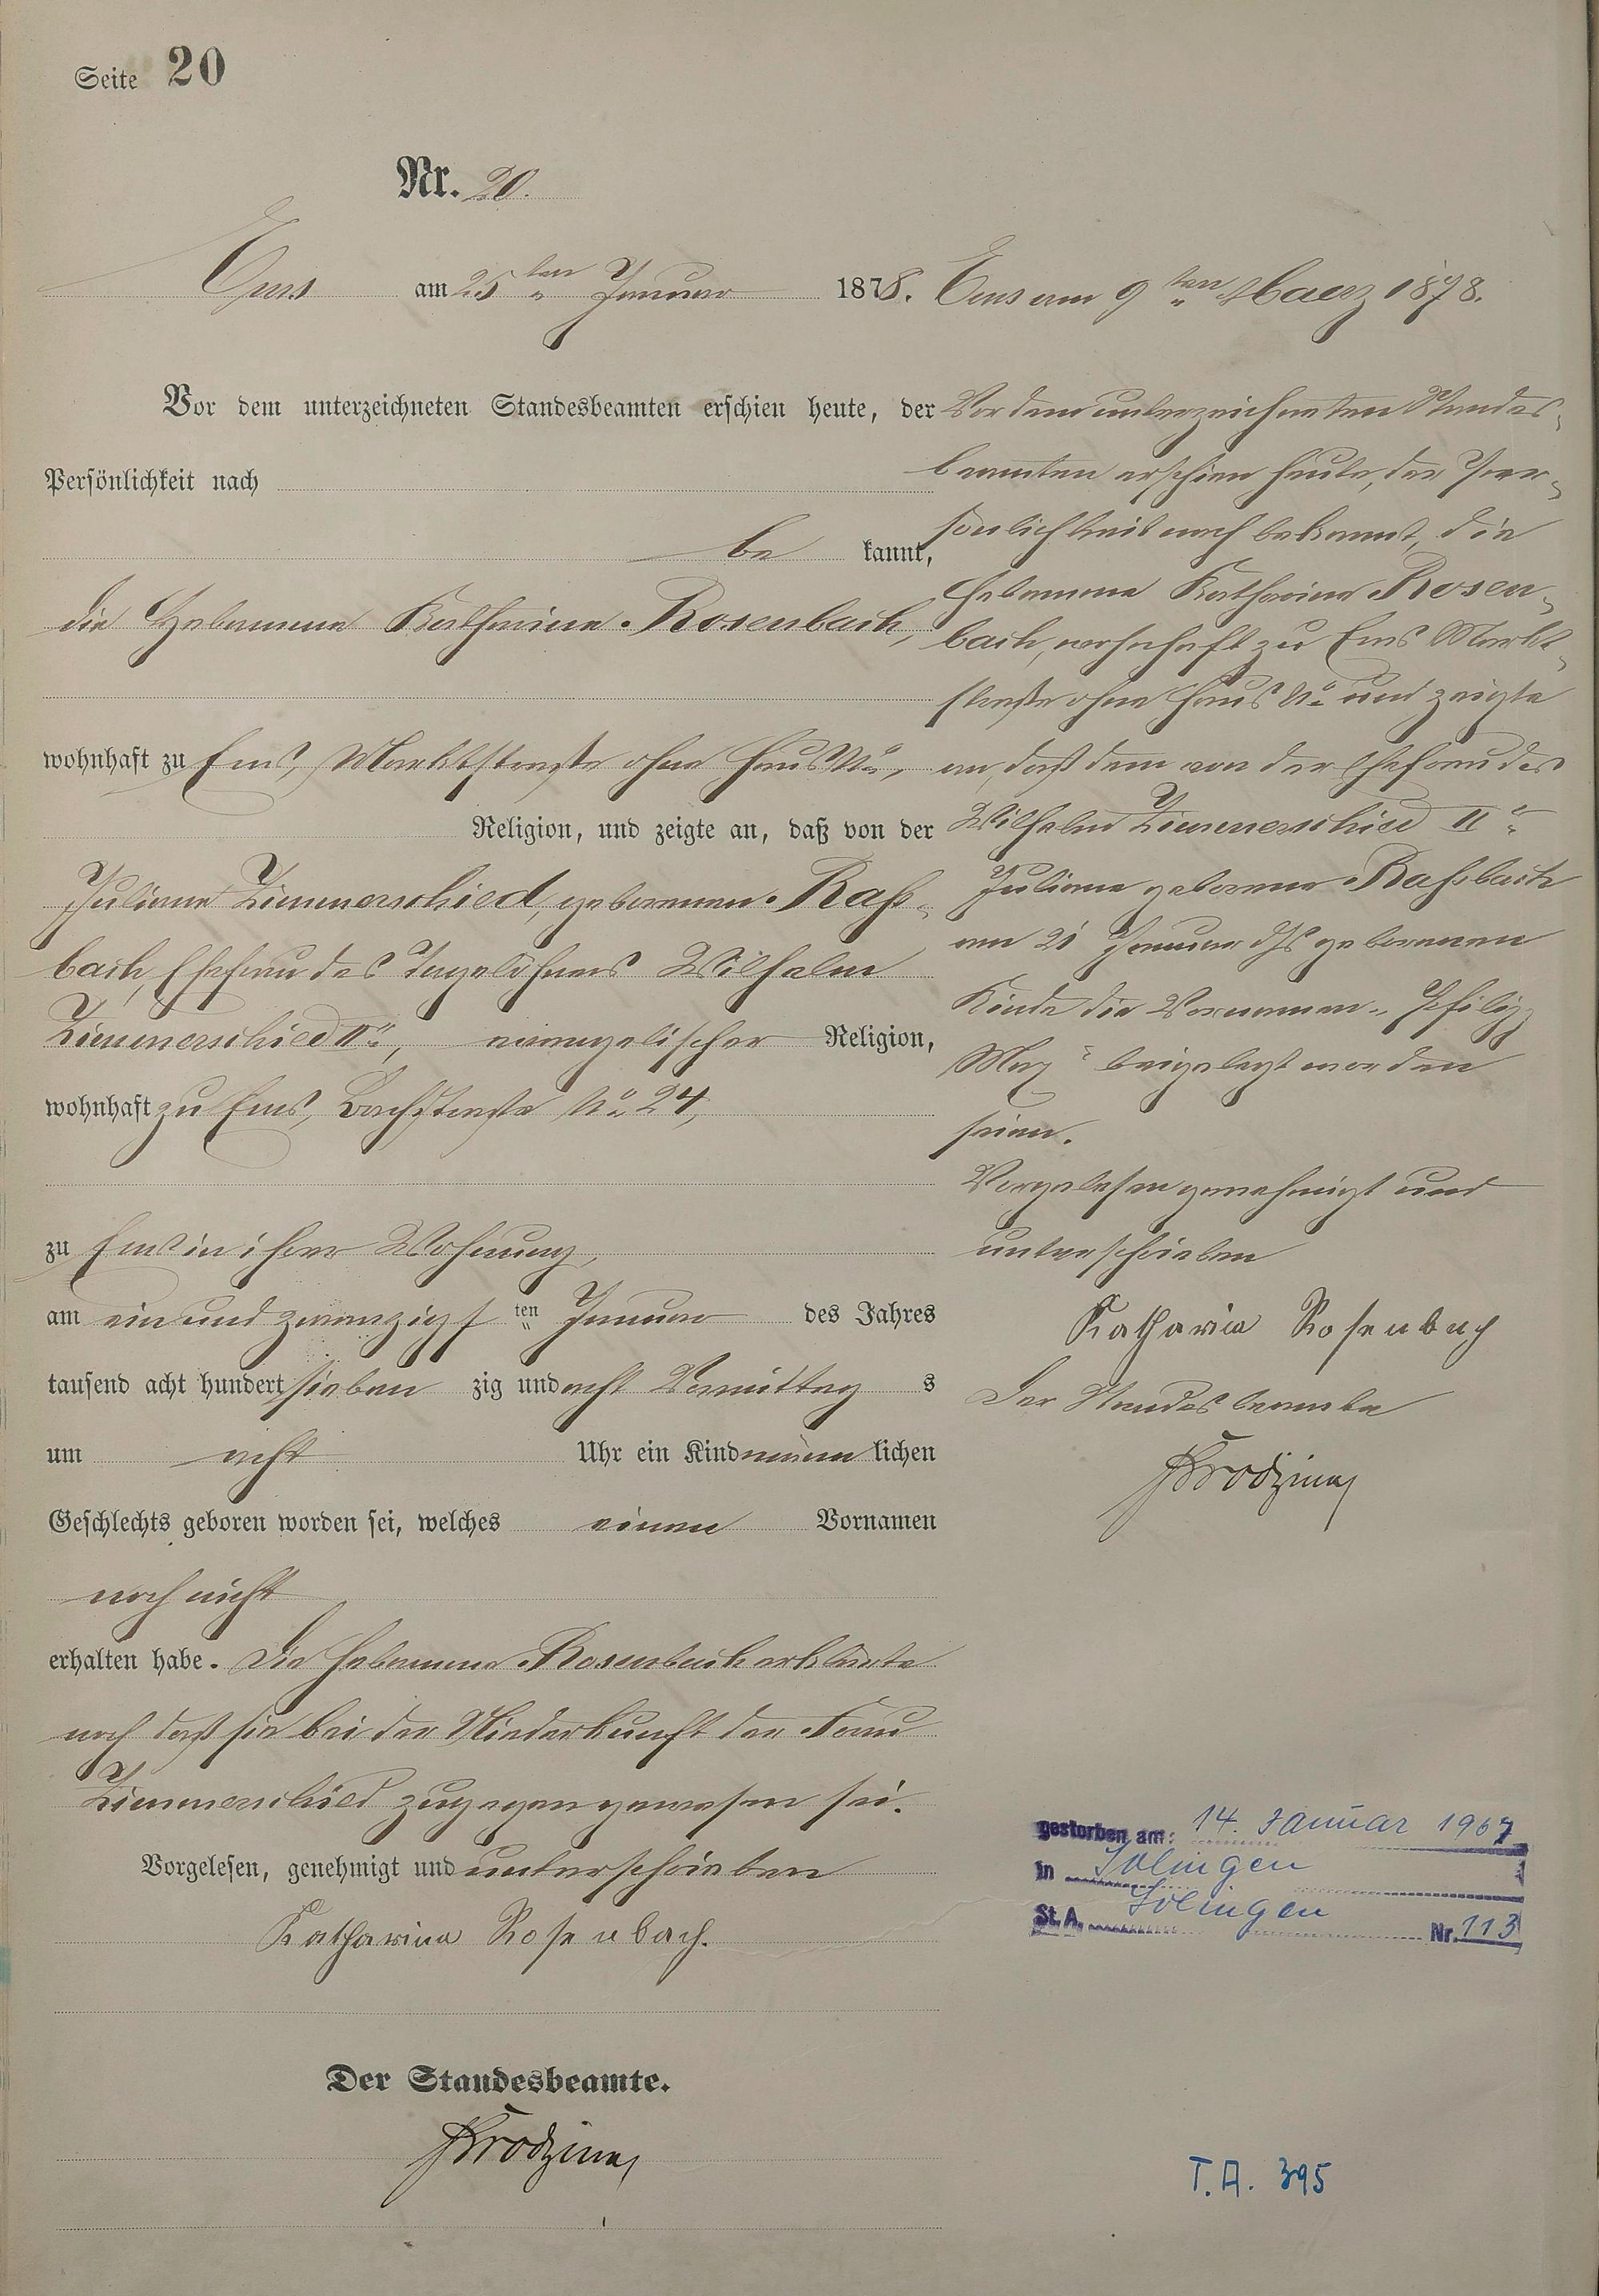 Seite 20
Nr. 20.
Ems am 25ten Januar 1878.
Vor dem unterzeichneten Standesbeamten erschien heute, der
Persönlichkeit nach
be kannt,
die Hebamme Katharina Rosenbach,
wohnhaft zu Ems, Marktstraße ohne Haus No,
Religion, und zeigte an, daß von der
Juliane Zimmerschied, geborenen Rahs-
bach, Ehefrau des Tagelöhners Wilhelm
Zimmerschied IIr, evangelischer Religion,
wohnhaft zu Ems, Bachstraße No 24,
zu Ems in ihrer Wohnung,
am ein und zwanzigsten Januar des Jahres
tausend acht hundert sieben zig und acht Vormittag s
um acht Uhr ein Kind männlichen
Geschlechts geboren worden sei, welches einen Vornamen
noch nicht
erhalten habe. Die Hebamme Rosenbach erklärte
noch daß sie bei der Niederkunft der Frau
Zimmerschied zugegen gewesen sei.
Vorgelesen, genehmigt und unterschrieben
Katharina Rosenbach.
Der Standesbeamte.
Ems am 9ten Maerz 1878.
Vor dem unterzeichneten Standes-
beamten erschien heute, der Per-
sönlichkeit nach bekannt, die
Hebamme Katharina Rosen-
bach, wohnhaft zu Ems Markt-
straße ohne Haus No und zeigte
an, daß dem von der Ehefrau des
Wilhelm Zimmerschied IIr
Juliane geborene Rahsbach
am 21 Januar ds Js geborenen
Kinde die Vornamen "Philipp
Max" beigelegt worden
seien.
Vorgelesen genehmigt und
unterschrieben
Katharina Rosenbach
Der Standesbeamte
gestorben am: 14. Januar 1967
in Solingen
St. A. Solingen Nr. 113
T.A. 395